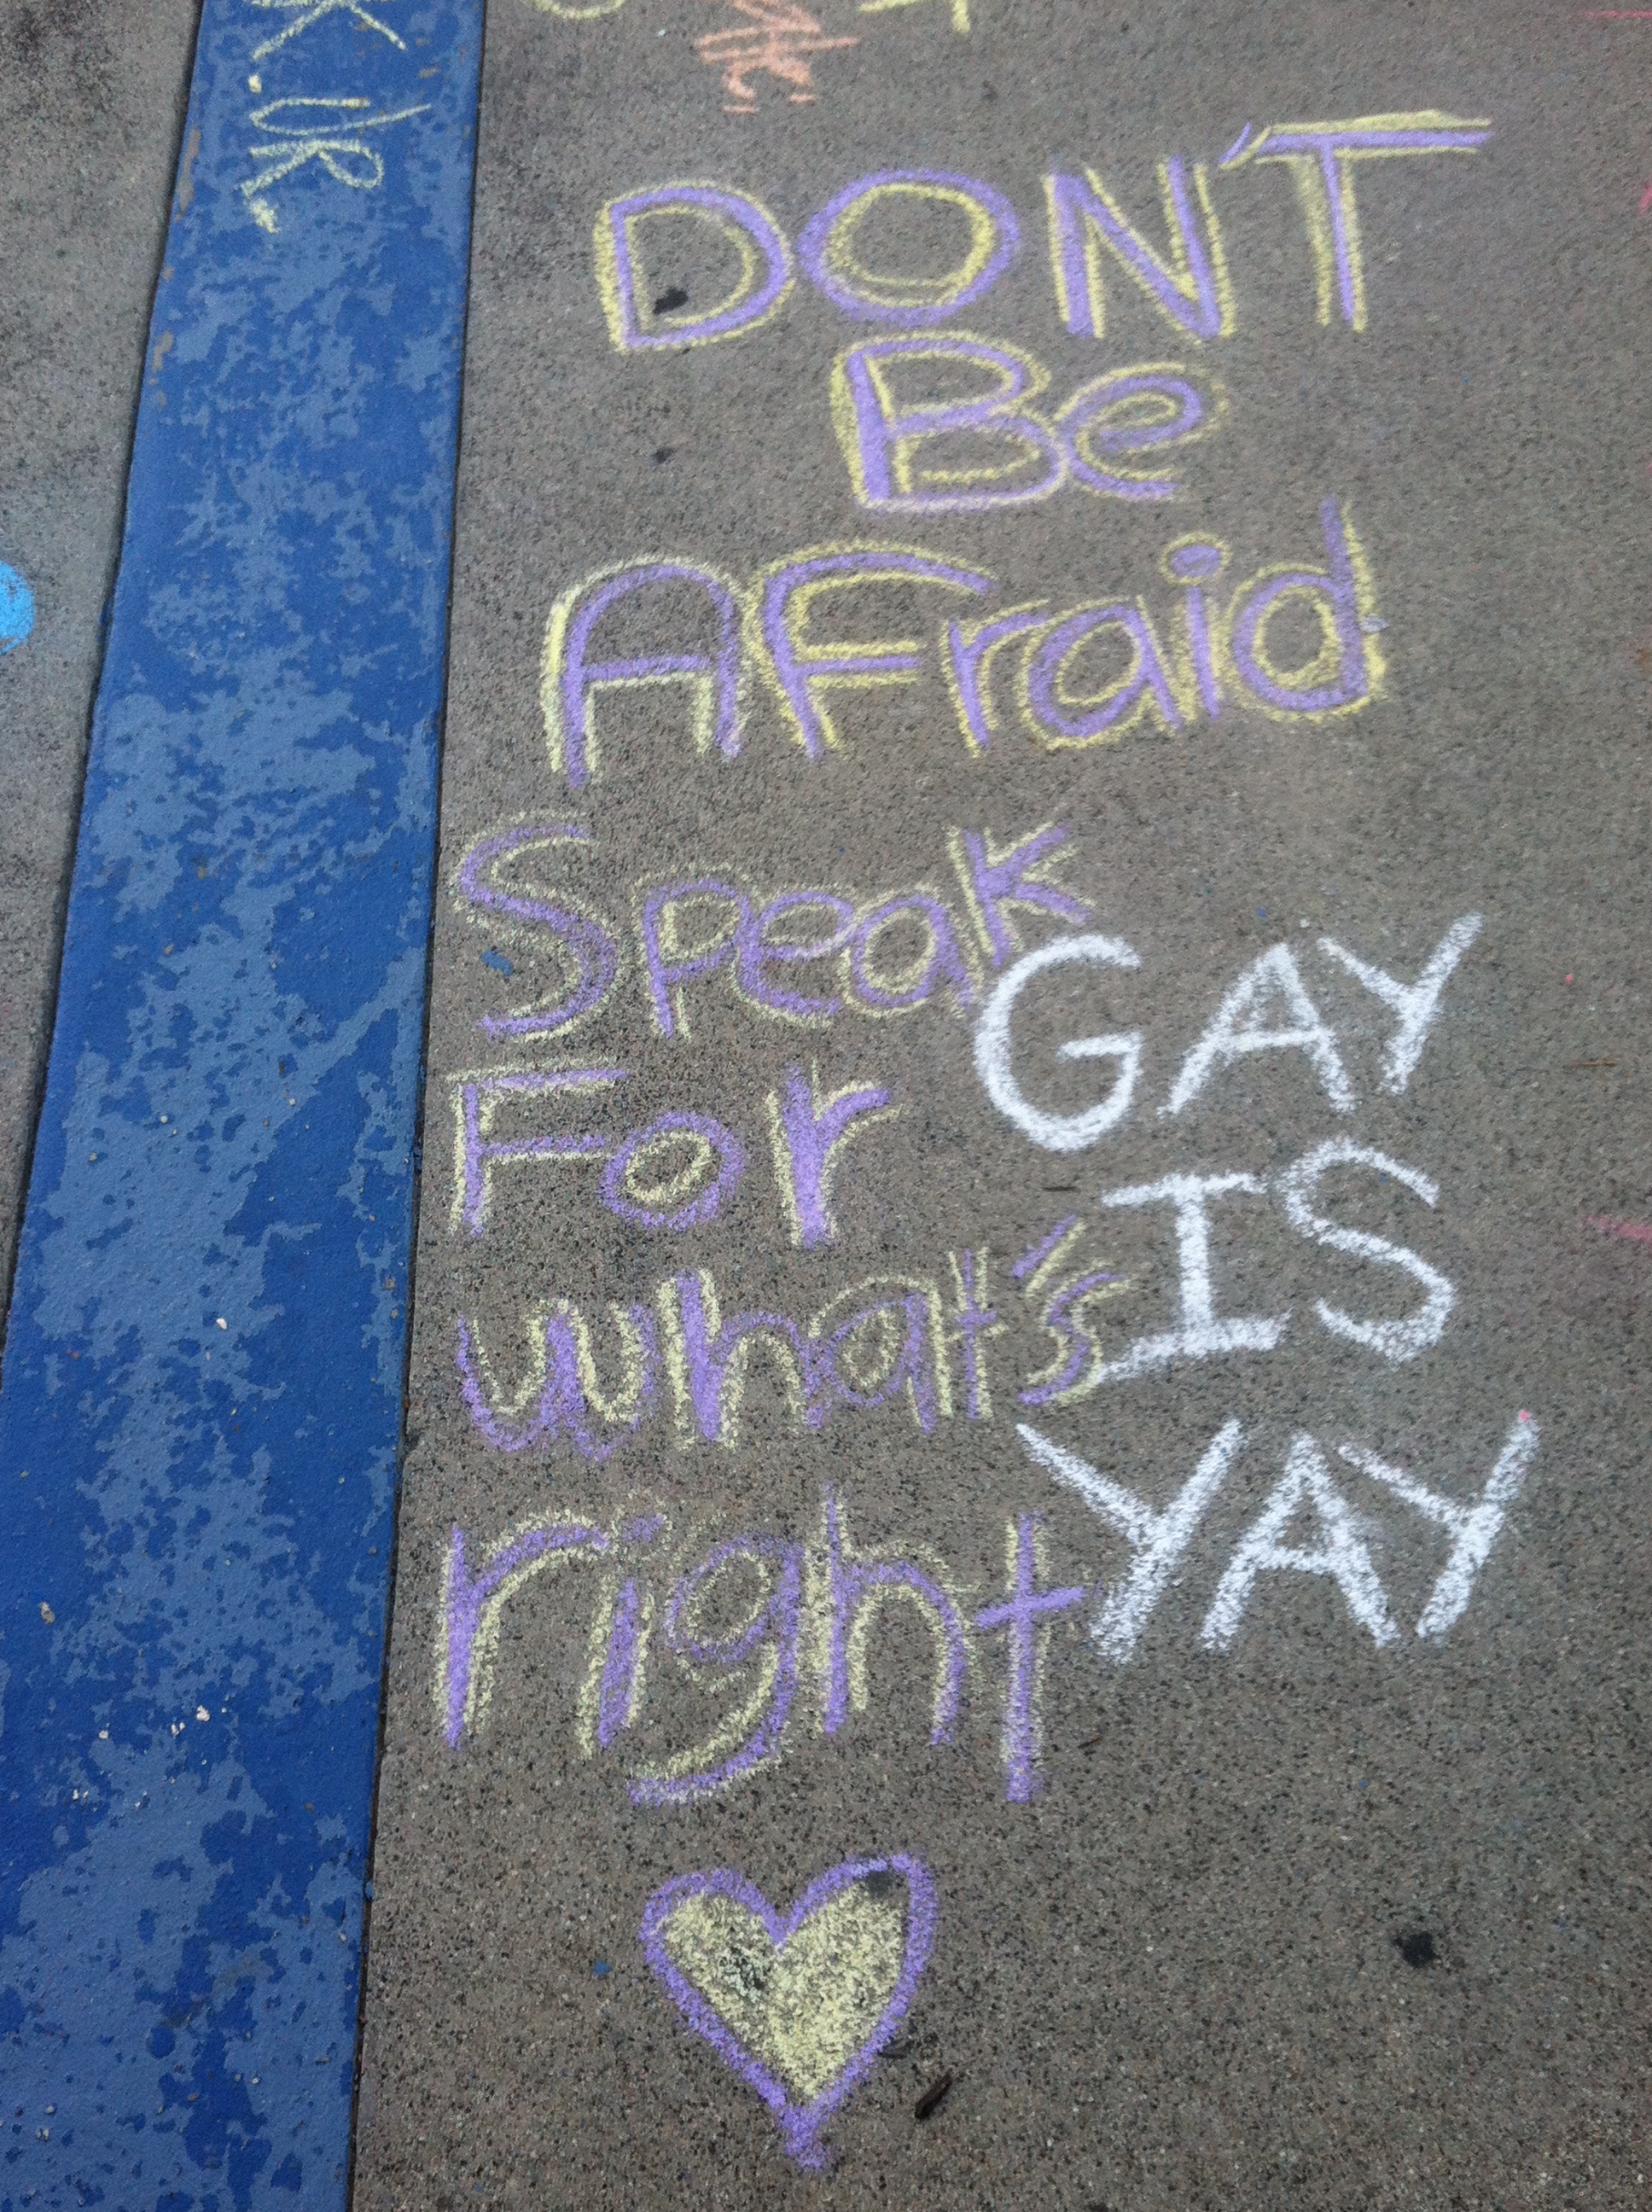 DON'T
Be
AFraid
Speak
For
what's
right
GAY
IS
YAY